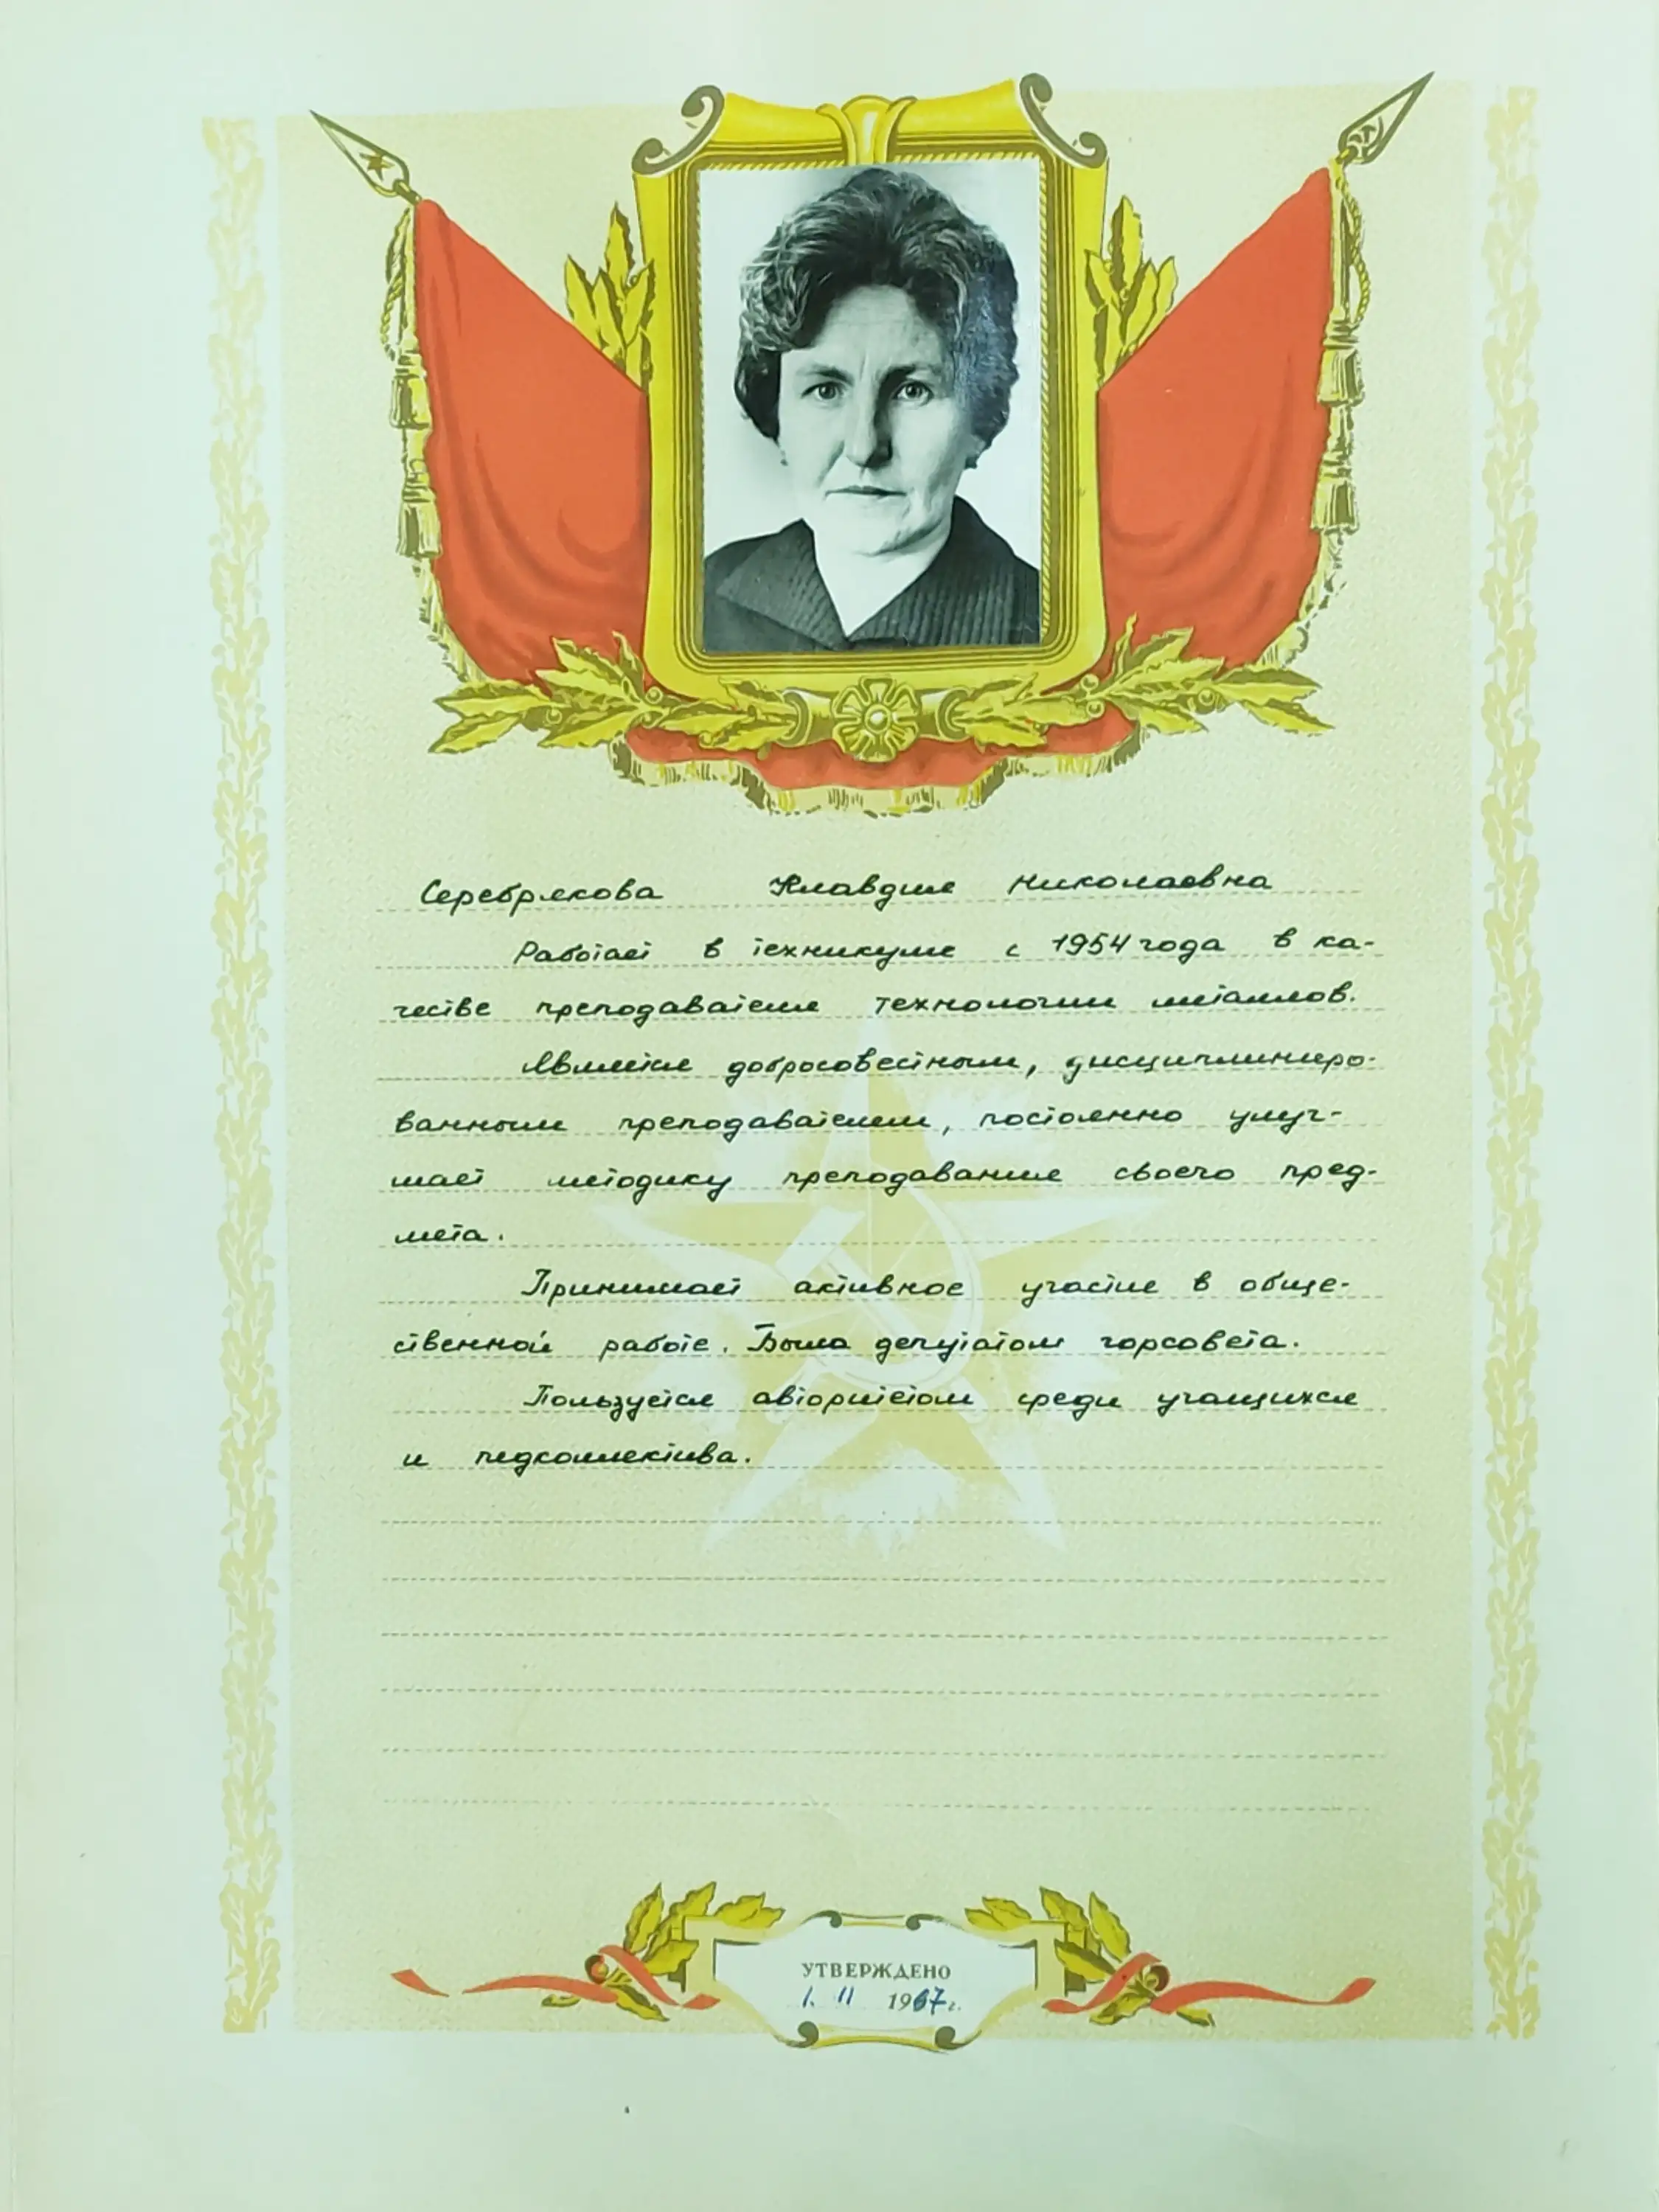 Серебрякова Клавдия Николаевна
Работает в техникуме с 1954 года в ка-
честве преподавателя технологии металлов.
Является добросовестным, дисциплиниро-
ванным преподавателем, постоянно улуч-
шает методику преподавания своего пред-
мета.
Принимает активное участие в обще-
ственной работе. Была депутатом горсовета.
Пользуется авторитетом среди учащихся
и педколлектива.
УТВЕРЖДЕНО
1. 11 1967г.